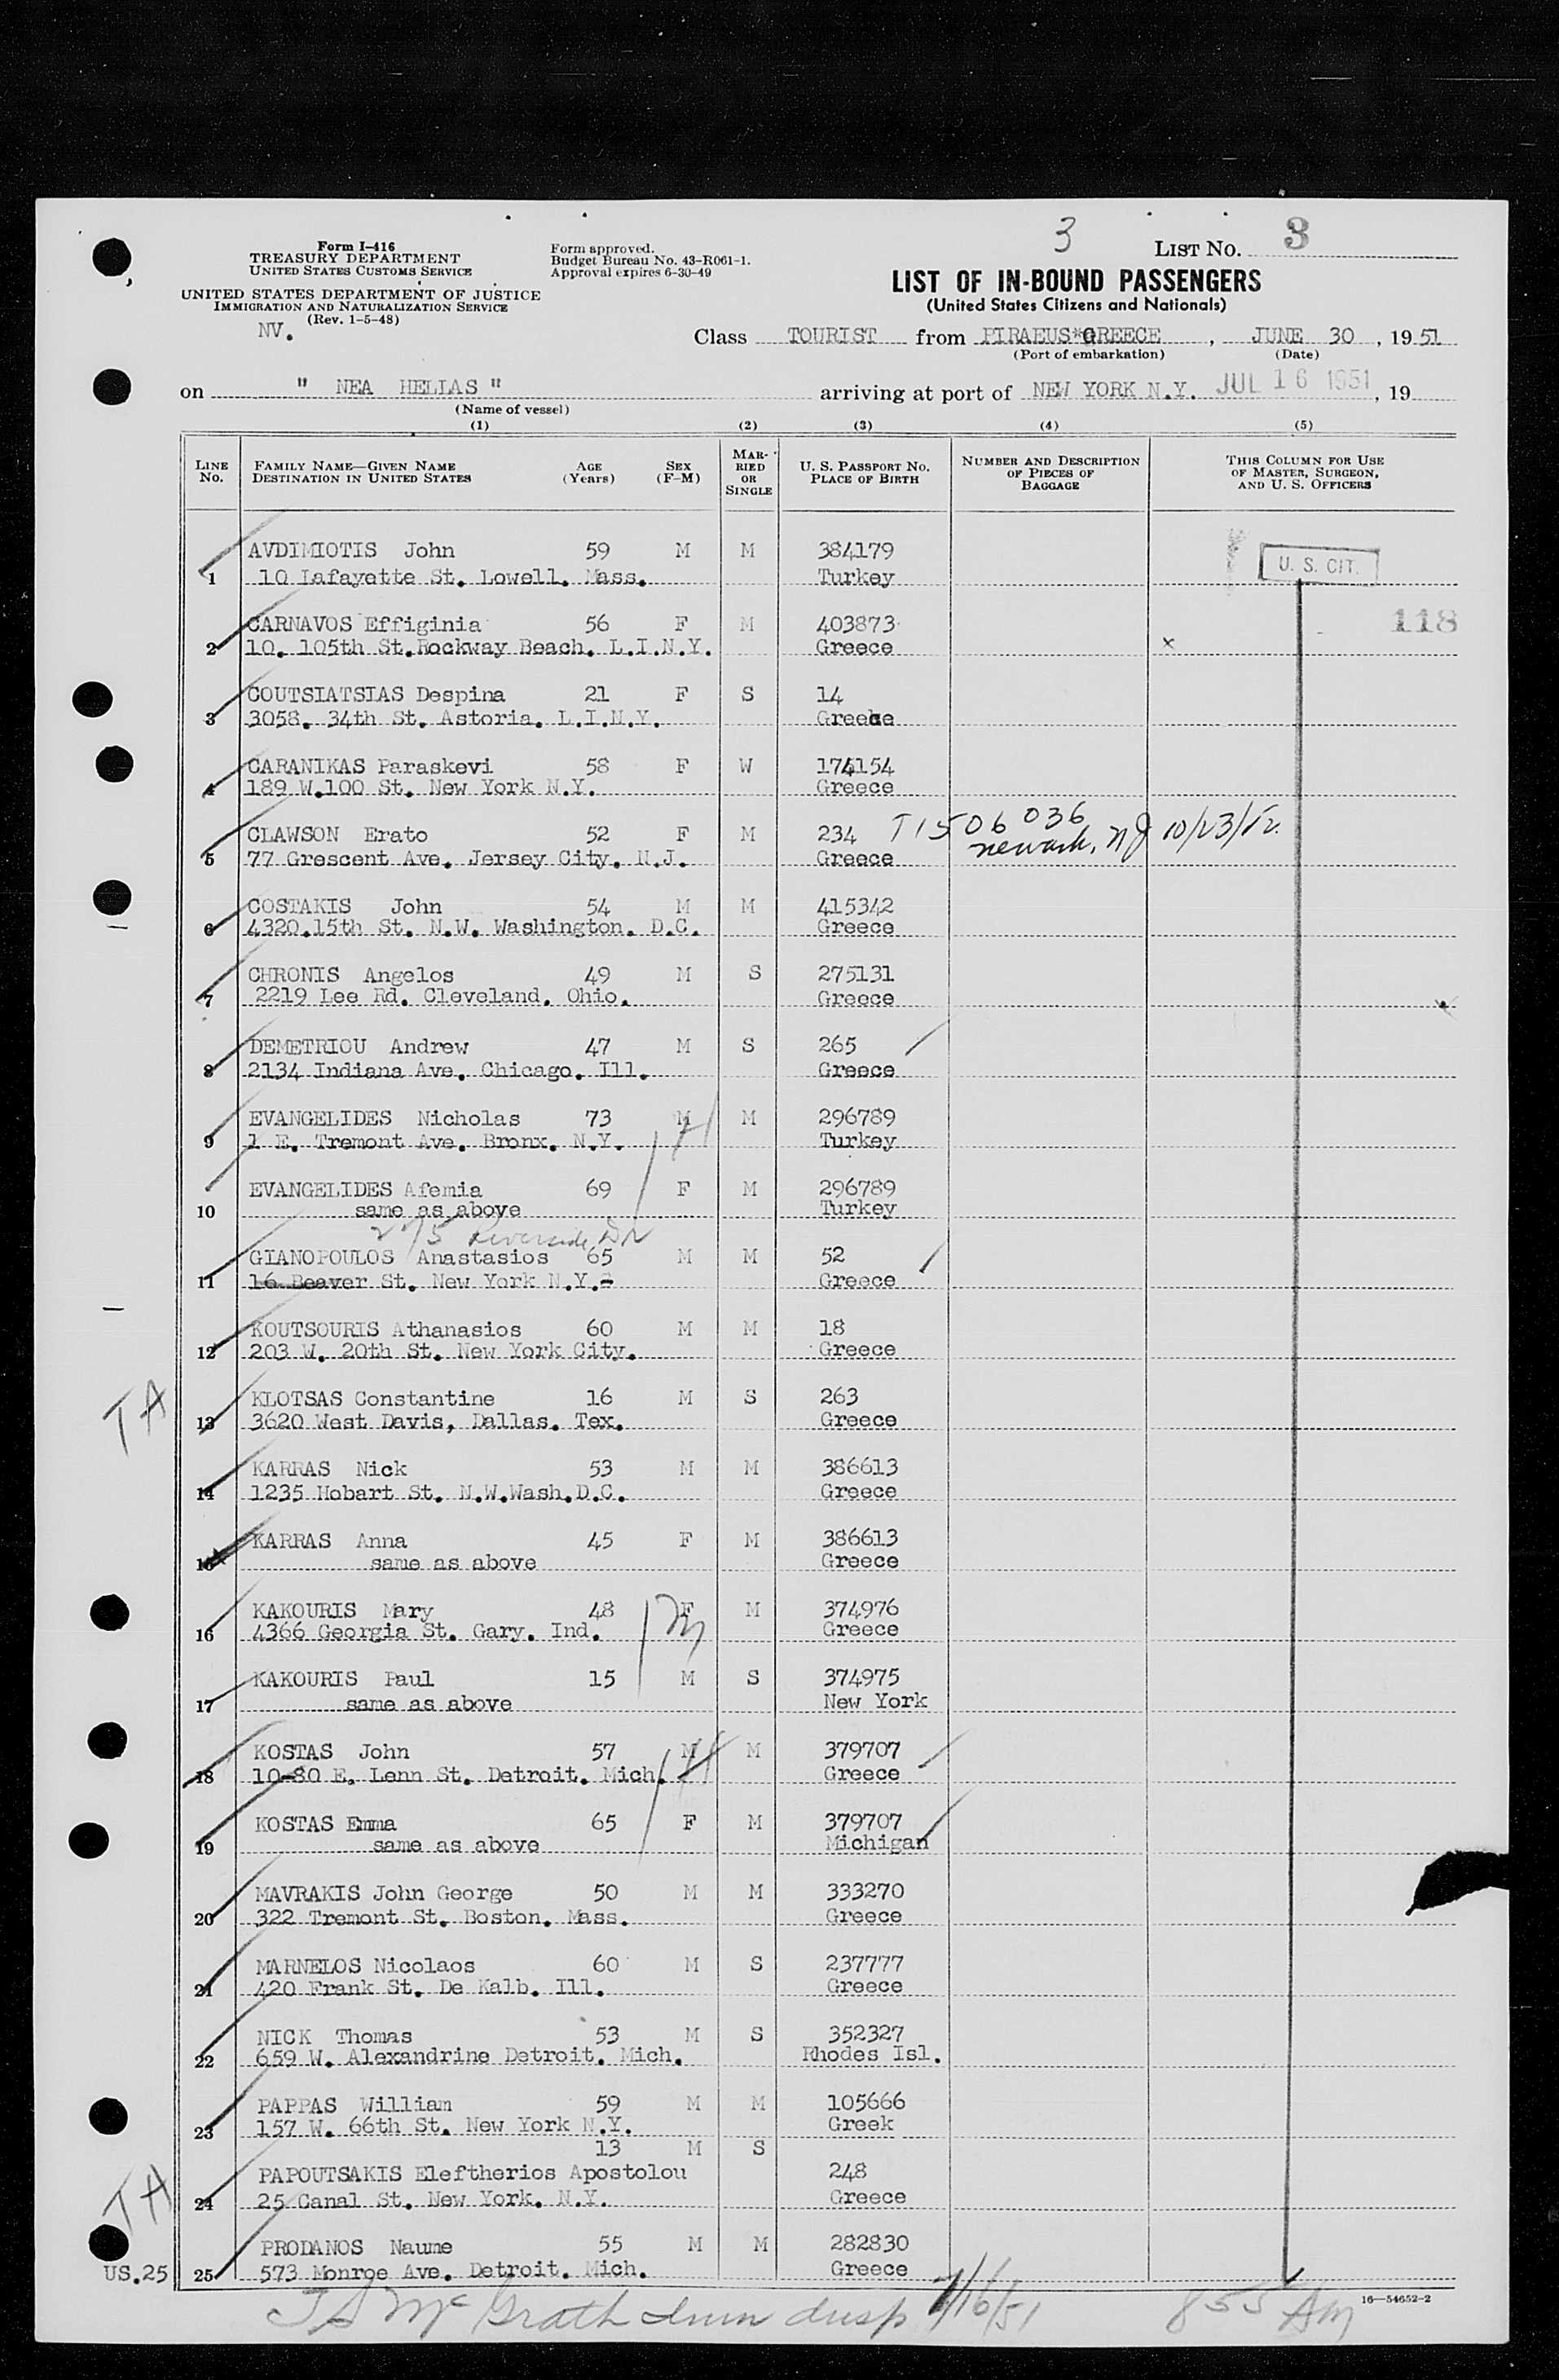 3 LIST NO. 3
Form I-416
TREASURY DEPARTMENT
UNITED STATES CUSTOMS SERVICE
UNITED STATES DEPARTMENT OF JUSTICE
IMMIGRATION AND NATURALIZATION SERVICE
(Rev. 1-5-48)
NV.
Form approved.
Budget Bureau No. 43-R061-1.
Approval expires 6-30-49
LIST OF IN-BOUND PASSENGERS
(United States Citizens and Nationals)
Class TOURIST from PIRAEUS*GREECE, JUNE 30, 1951
(Port of embarkation) (Date)
on " NEA HELLAS " arriving at port of NEW YORK N.Y. JUL 16 1951, 19
(Name of vessel)
(1) (2) (3) (4) (5)
LINE No. FAMILY NAME—GIVEN NAME DESTINATION IN UNITED STATES AGE (Years) SEX (F-M) MARRIED OR SINGLE U. S. PASSPORT NO. PLACE OF BIRTH NUMBER AND DESCRIPTION OF PIECES OF BAGGAGE THIS COLUMN FOR USE OF MASTER, SURGEON, AND U. S. OFFICERS
AVDIMIOTIS John 59 M M 384179 U. S. CIT.
1 10 Lafayette St. Lowell. Mass. Turkey
CARNAVOS Effiginia 56 F M 403873 118
2 10. 105th St.Rockway Beach. L.I.N.Y. Greece x
COUTSIATSIAS Despina 21 F S 14
3 3058. 34th St. Astoria. L.I.N.Y. Greece
CARANIKAS Paraskevi 58 F W 174154
4 189 W.100 St. New York N.Y. Greece
CLAWSON Erato 52 F M 234 T1506036 10/23/52
5 77 Grescent Ave. Jersey City. N.J. Greece Newark, NJ
COSTAKIS John 54 M M 415342
6 4320.15th St. N.W. Washington. D.C. Greece
CHRONIS Angelos 49 M S 275131
7 2219 Lee Rd. Cleveland. Ohio. Greece
DEMETRIOU Andrew 47 M S 265
8 2134 Indiana Ave. Chicago. Ill. Greece
EVANGELIDES Nicholas 73 M M 296789
9 1 E. Tremont Ave. Bronx. N.Y. Turkey
EVANGELIDES Afemia 69 F M 296789
10 same as above Turkey
275 Riverside DR
GIANOPOULOS Anastasios 65 M M 52
11 16 Beaver St. New York N.Y. Greece
KOUTSOURIS Athanasios 60 M M 18
12 203 W. 20th St. New York City. Greece
TA KLOTSAS Constantine 16 M S 263
13 3620 West Davis, Dallas. Tex. Greece
KARRAS Nick 53 M M 386613
14 1235 Hobart St. N.W.Wash.D.C. Greece
KARRAS Anna 45 F M 386613
15 same as above Greece
KAKOURIS Mary 48 F M 374976
16 4366 Georgia St. Gary. Ind. Greece
KAKOURIS Paul 15 M S 374975
17 same as above New York
KOSTAS John 57 M M 379707
18 10-80 E. Lenn St. Detroit. Mich. Greece
KOSTAS Emma 65 F M 379707
19 same as above Michigan
MAVRAKIS John George 50 M M 333270
20 322 Tremont St. Boston. Mass. Greece
MARNELOS Nicolaos 60 M S 237777
21 420 Frank St. De Kalb. Ill. Greece
NICK Thomas 53 M S 352327
22 659 W. Alexandrine Detroit. Mich. Rhodes Isl.
PAPPAS William 59 M M 105666
23 157 W. 66th St. New York N.Y. Greek
13 M S
TA PAPOUTSAKIS Eleftherios Apostolou 248
24 25 Canal St. New York. N.Y. Greece
PRODANOS Naume 55 M M 282830
US.25 25 573 Monroe Ave. Detroit. Mich. Greece
McGrath Imm Insp 7/16/51 855 AM
16—54652-2